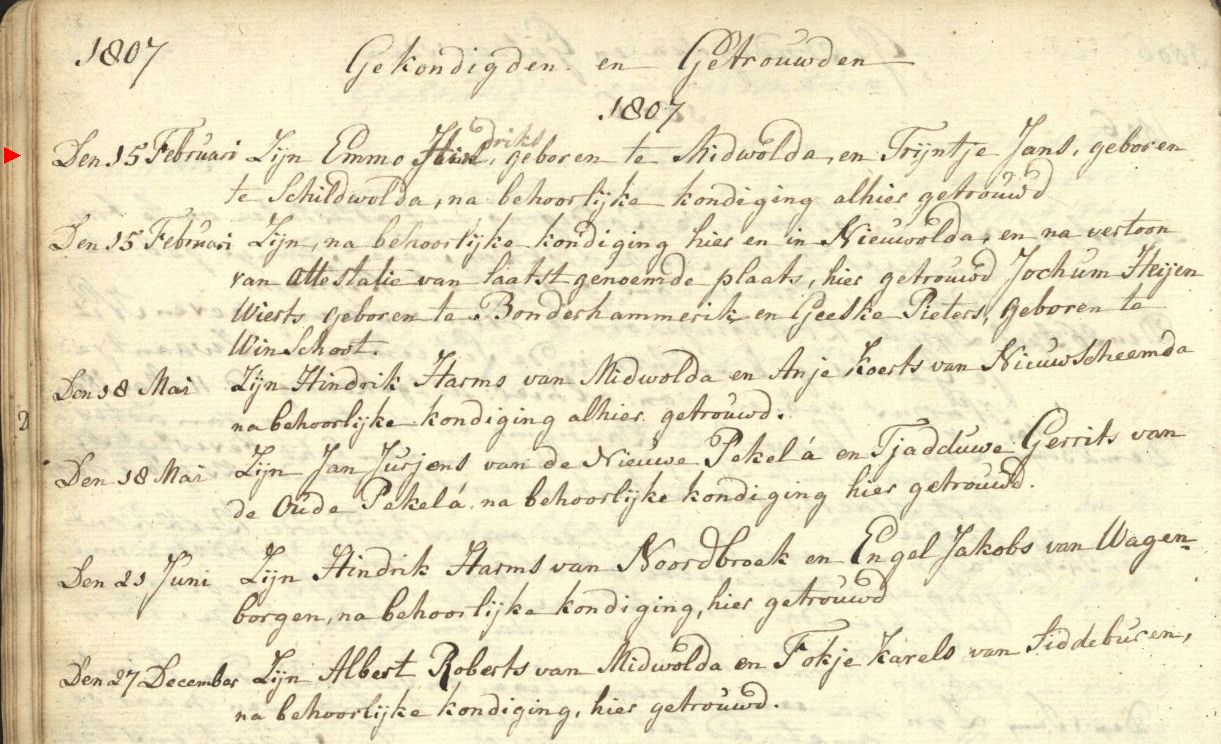 1807
Gekondigden en Getrouwden
1807
Den 15 Februari Zijn Emmo Hindriks, geboren te Midwolda, en Trijntje Jans, geboren
te Schildwolda, na behoorlijke kondiging alhier getrouwd
Den 15 Februari Zijn, na behoorlijke kondiging hier en in Nieuwolda, en na vertoon
van attestatie van laatst genoemde plaats, hier getrouwd Jochum Heijen
Wierts geboren te Bonderhammerik en Geeske Pieters, geboren te
WinSchoot.
Den 18 Mai Zijn Hindrik Harms van Midwolda en Anje Koerts van NieuwScheemda
na behoorlijke kondiging alhier getrouwd.
2
Den 18 Mai Zijn Jan Jurjens van de Nieuwe Pekelá en Tjadduwe Gerrits van
de Oude Pekelá, na behoorlijke kondiging hier getrouwd.
Den 21 Juni Zijn Hindrik Harms van Noordbroek en Engel Jakobs van Wagen-
borgen, na behoorlijke kondiging, hier getrouwd
Den 27 December Zijn Albert Roberts van Midwolda en Fokje Karels van Siddeburen,
na behoorlijke kondiging, hier getrouwd.